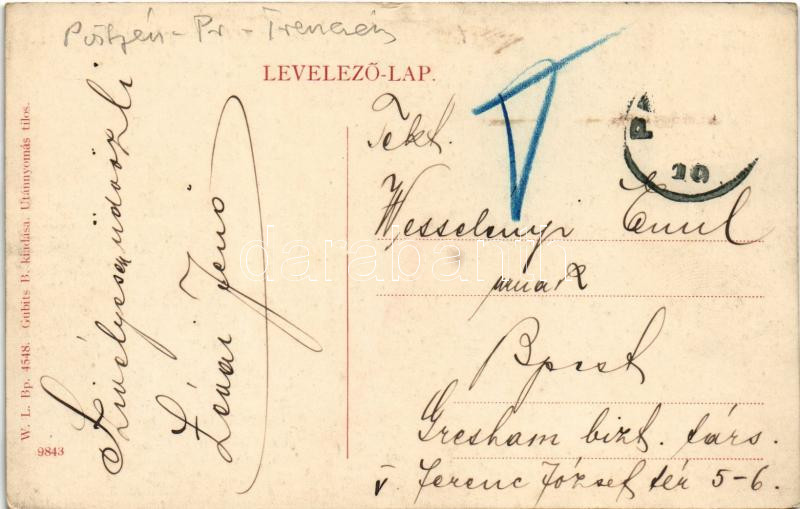 Pöstyén - Pr - Trencsén
LEVELEZŐ-LAP.
Szívélyesen üdvözli
Lévai Jenő
Tekt.
Wesselényi Emil
úrnak
Bpest
Gresham bizt. társ.
V Ferenc József tér 5-6.
P
10
W. L. Bp. 4548. Gubits B. kiadása. Utánnyomás tilos.
9843
darabanth